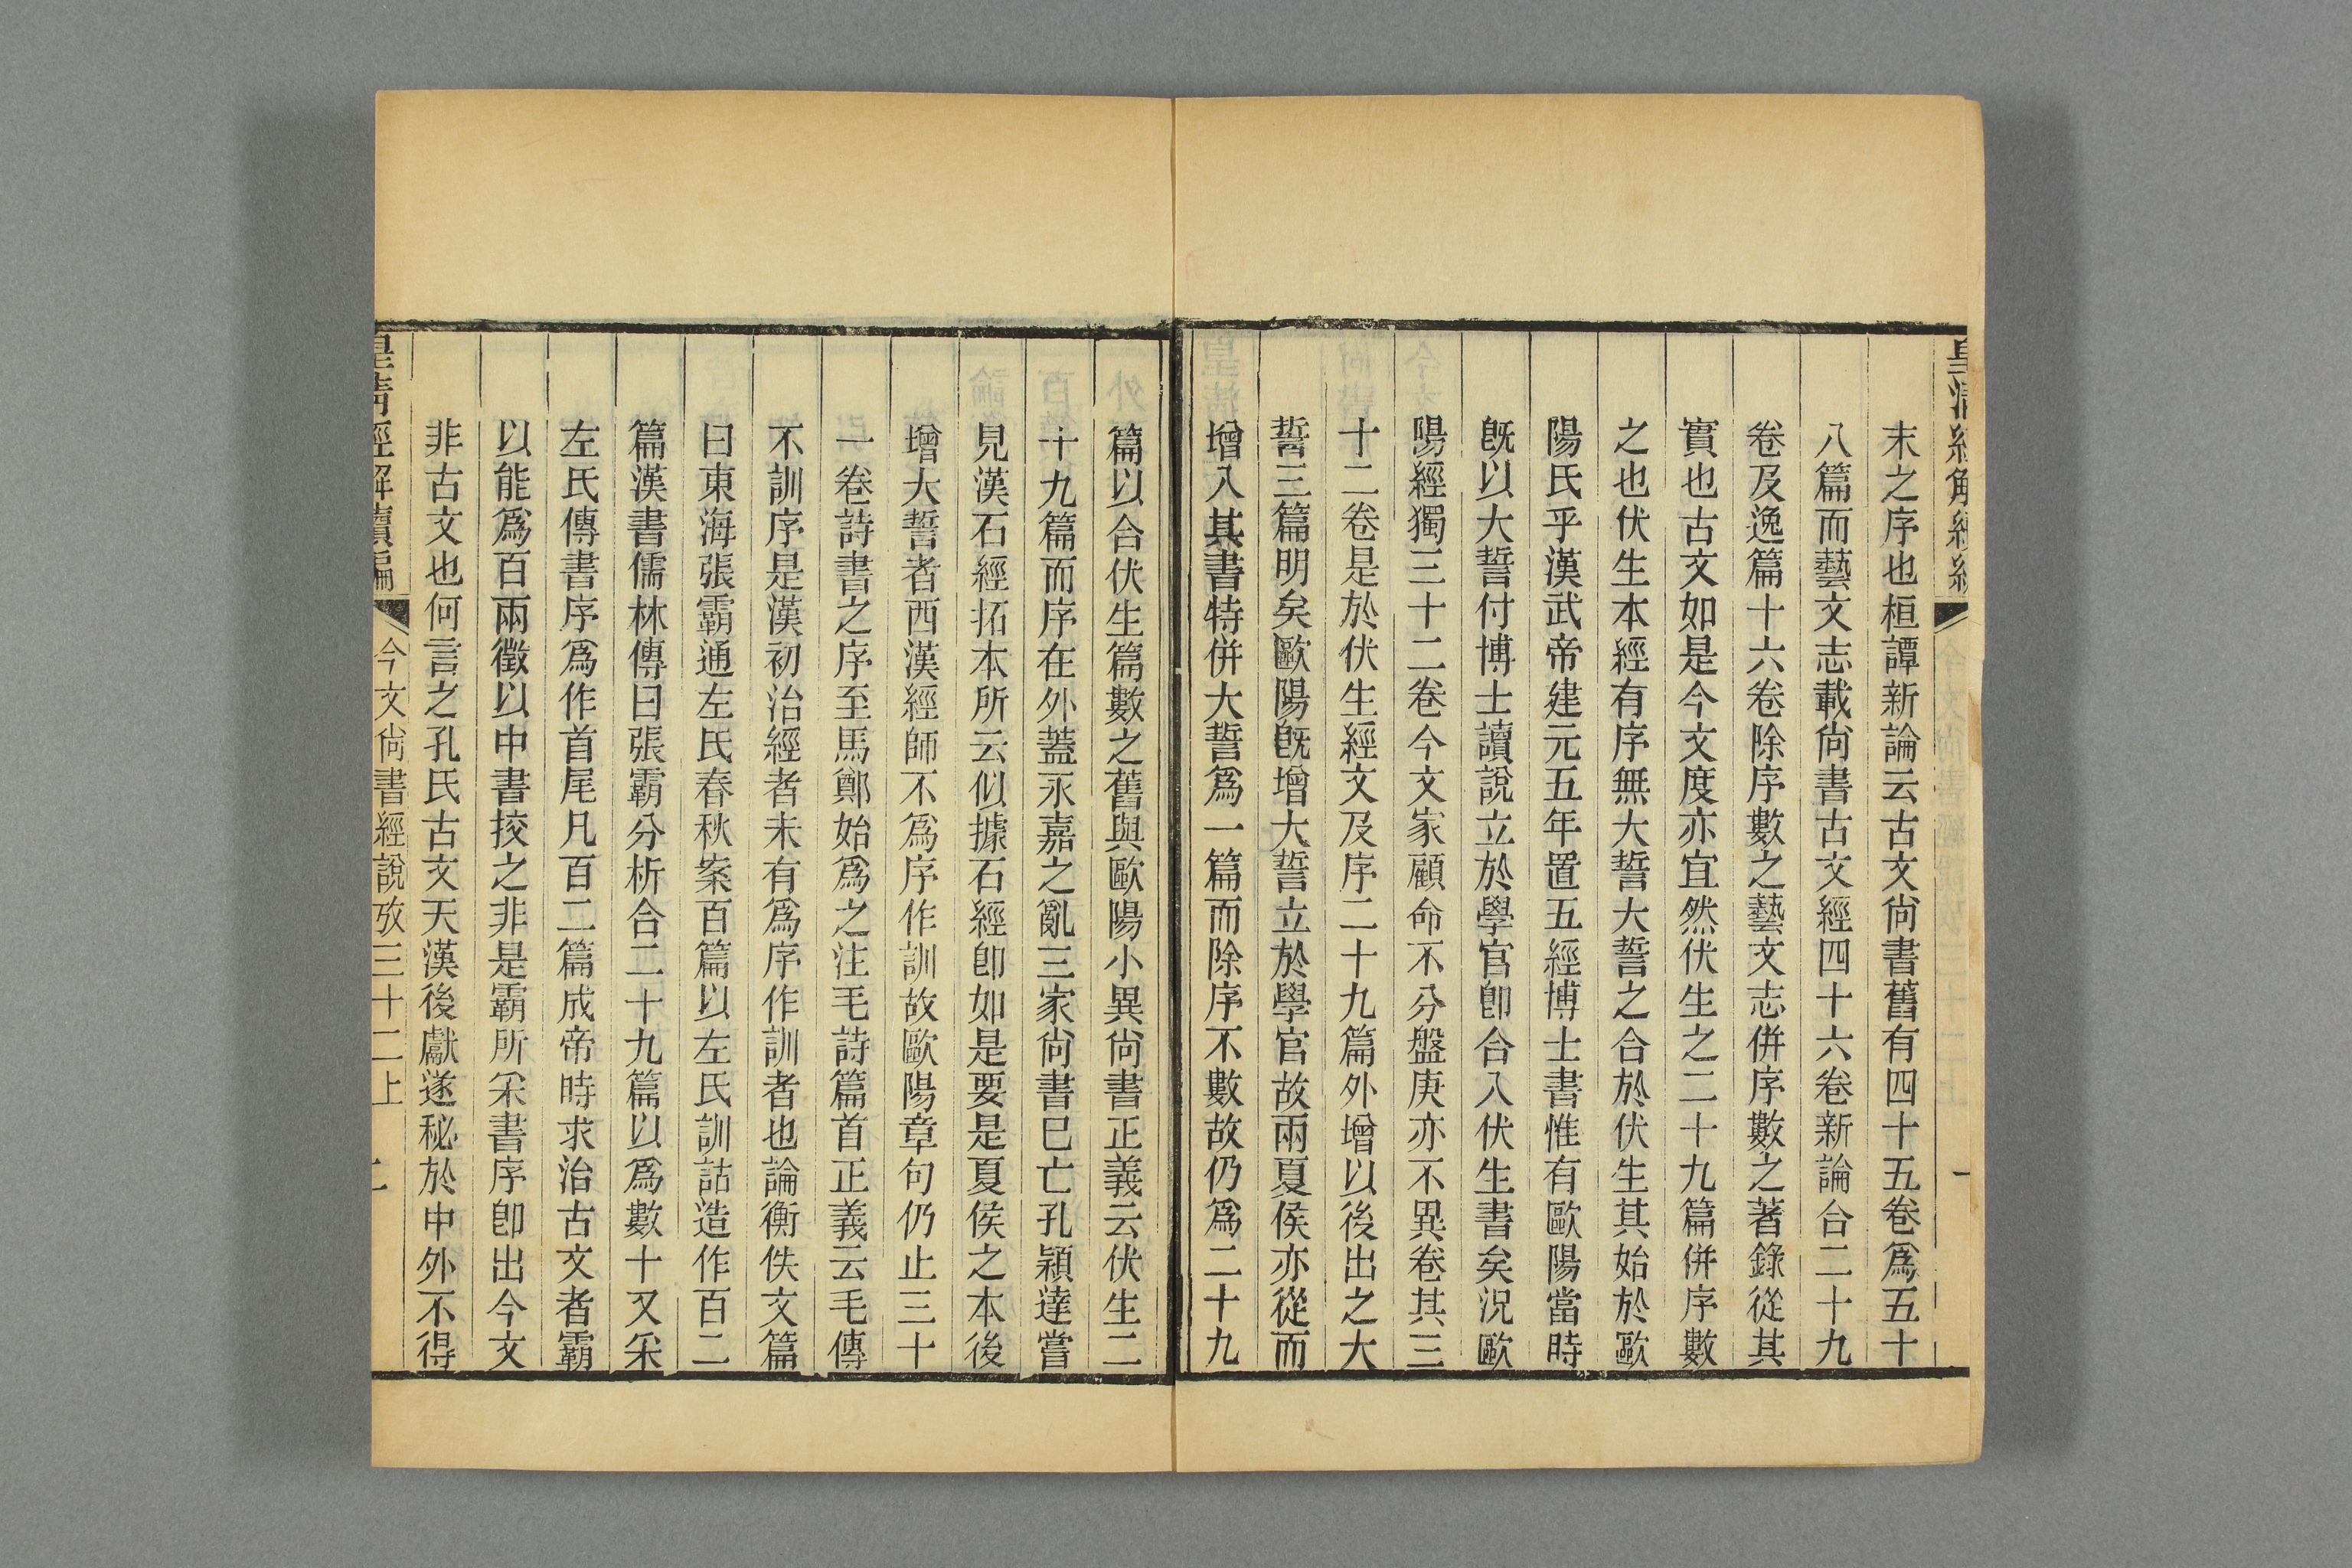 皇清經解續編
一
末之序也桓譚新論云古文尙書舊有四十五卷爲五十
八篇而藝文志載尙書古文經四十六卷新論合二十九
卷及逸篇十六卷除序數之藝文志併序數之著錄從其
實也古文如是今文度亦宜然伏生之二十九篇併序數
之也伏生本經有序無大誓大誓之合於伏生其始於歐
陽氏乎漢武帝建元五年置五經博士書惟有歐陽當時
旣以大誓付博士讀說立於學官卽合入伏生書矣況歐
陽經獨三十二卷今文家顧命不分盤庚亦不異卷其三
十二卷是於伏生經文及序二十九篇外增以後出之大
誓三篇明矣歐陽旣增大誓立於學官故兩夏侯亦從而
增入其書特併大誓爲一篇而除序不數故仍爲二十九
篇以合伏生篇數之舊與歐陽小異尙書正義云伏生二
十九篇而序在外蓋永嘉之亂三家尙書已亡孔穎達嘗
見漢石經拓本所云似據石經卽如是要是夏侯之本後
增大誓者西漢經師不爲序作訓故歐陽章句仍止三十
一卷詩書之序至馬鄭始爲之注毛詩篇首正義云毛傳
不訓序是漢初治經者未有爲序作訓者也論衡佚文篇
曰東海張霸通左氏春秋案百篇以左氏訓詁造作百二
篇漢書儒林傳曰張霸分析合二十九篇以爲數十又采
左氏傳書序爲作首尾凡百二篇成帝時求治古文者霸
以能爲百兩徵以中書挍之非是霸所采書序卽出今文
非古文也何言之孔氏古文天漢後獻遂秘於中外不得
皇清經解續編
今文尙書經說攷三十二上
二